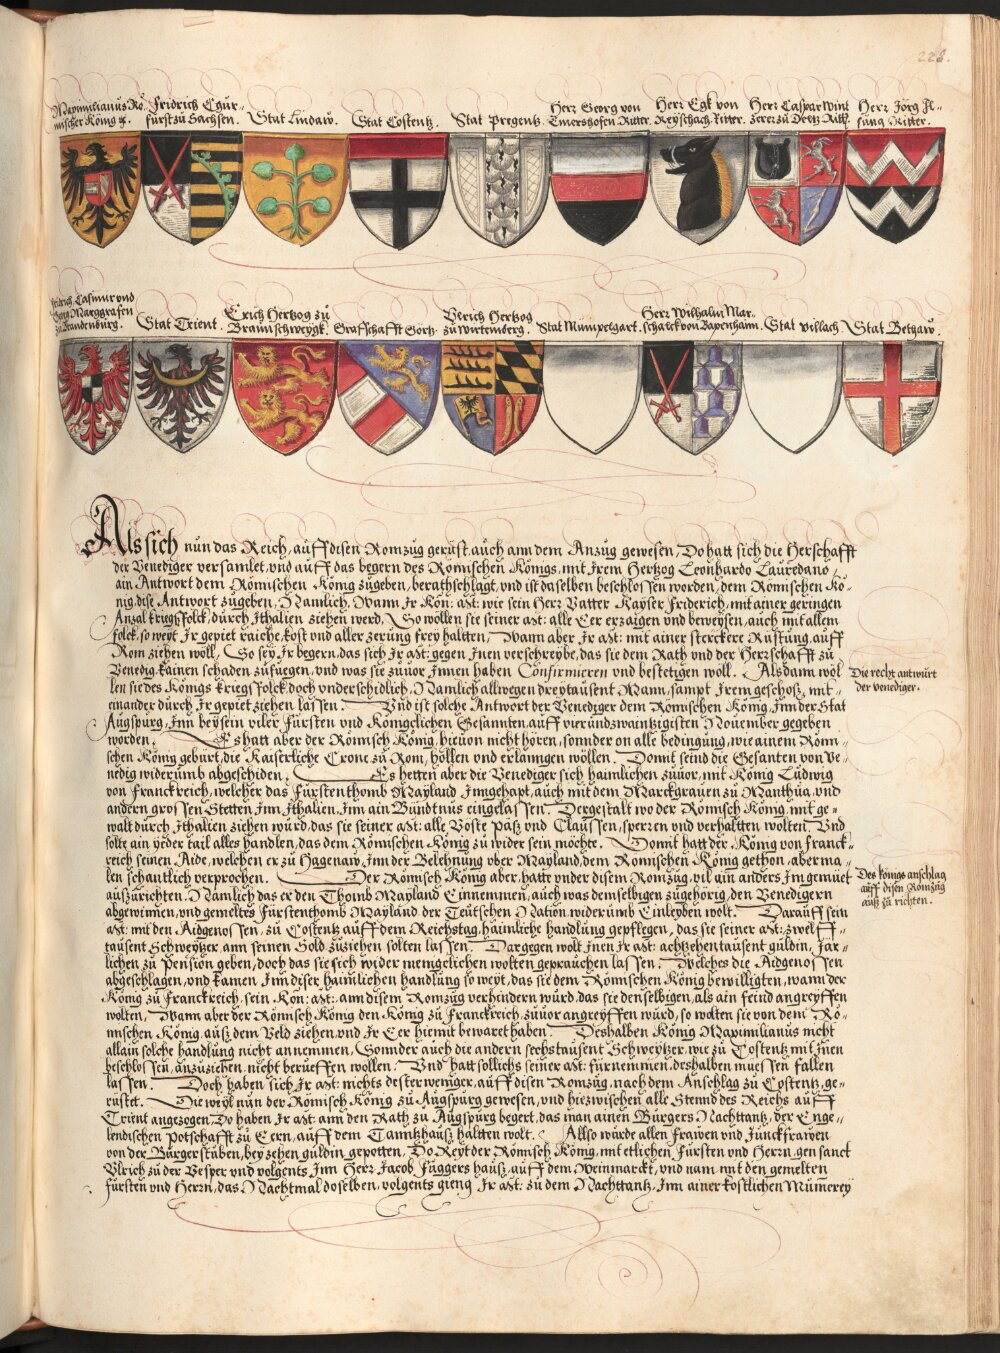 228.
Maximilianus Rö-
mischer König ꝛc.
Fridrich Chur-
fürst zu Sachsen.
Stat Lindaw.
Stat Costentz.
Stat Pregentz.
Herr Georg von
Emershofen Ritter.
Herr Egk von
Reyschach Ritter.
Herr Caspar Wint
zerer zu Ritt.
Herr Jörg
Ritter.
Fridrich, Casimir vnd
Georg Marggrafen
zu Brandenburg.
Stat Trient.
Erich Hertzog zu
Braunschweygk.
Grafschafft Görtz.
Vlrich Hertzog
zu Wirtemberg.
Stat Mümpelgart.
Herr Wilhalm Mar-
schalck von Bapenhaim.
Stat Villach.
Stat Bethaw.
Als sich nun das Reich, auff disen Romzug gerüst, auch ann dem Anzug gewesen, Do hatt sich die Herschafft
der Venediger versamlet, vnd auff das begern des Römischen Königs, mit Irem Hertzog Leonhardo Lauredano,
ain Antwort dem Römischen König zugeben, berathschlagt, vnd ist daselben beschlossen worden, dem Römischen Kö-
nig, dise Antwort zügeben, Namlich, Wann Ir Kön: Mt: wie sein Herr Vatter Kayser Friderich, mit ainer geringen
Anzal kriegsfolck, durch Ithalien ziehen werd, So wöllen sie seiner Mt: alle Eer erzaigen vnd beweysen, auch mit allem
folck, so weyt Ir gepiet raiche, kost vnd aller zerüng frey haltten, Wann aber Ir Mt: mit ainer sterckere Rüstung, auff
Rom ziehen wöll, So sey Ir begern, das sich Ir Mt: gegen Inen verschreybe, das sie dem Rath vnd der Herrschafft zü
Venedig, kainen schaden zufüegen, vnd was sie züuor Innen haben Confirmieren vnd bestetigen wöll. Alsdann wöl
len sie des Königs kriegsfolck, doch vnderschidlich, Namlich allwegen dreytausent Mann, sampt Irem geschoss, mit-
einander durch Ir gepiet ziehen lassen. Vnd ist solche Antwort der Venediger dem Römischen König, Inn der Stat
Augspurg, Inn beysein viler Fürsten vnd Königclichen Gesannten, auff vierundzwaintzigisten Nouember gegeben
worden. Es hatt aber der Römisch König, hieuon nicht hören, sonnder on alle bedingung, wie ainem Römi-
schen König gebürt, die Kaiserliche Crone zu Rom, hollen vnd erlanngen wöllen. Domit seind die Gesanten von Ve-
nedig widerumb abgeschiden. Es hetten aber die Venediger sich haimlichen züuor, mit König Ludwig
von Franckreich, welcher das Fürstenthomb Mayland Inngehapt, auch mit dem Marckgrauen zu Manthua, vnd
andern grossen Stetten Inn Ithalien, Inn ain Bündtnus eingelassen. Dergestalt wo der Römisch König, mit ge-
walt durch Ithalien ziehen würd, das sie seiner Mt: alle Böste Päss vnd Claussen, sperren vnd verhaltten wolten. Vnd
solte ain yeder tail alles handlen, das dem Römischen König zu wider sein möchte. Domit hatt der König von Franck-
reich seinen Aide, welchen er zu Hagenaw, Inn der Belehnung vber Mayland, dem Römischen König gethon, aberma-
len schantlich verprochen. Der Römisch König aber, hatt vnder disem Romzug, vil ain anders, Im gemüet
auszürichten. Namlich das er den Thomb Mayland Einnemmen, auch was demselbigen zugehörig, den Venedigern
abgewinnen, vnd gemeltes Fürstenthomb Mayland der Teutschen Nation widerumb Einleyben wolt. Darauff sein
Mt: mit den Aidgenossen, zu Costentz auff dem Reichstag, haimliche handlung gepflegen, das sie seiner Mt: zwelff-
tausent Schweytzer ann seinen Sold züziehen solten lassen. Dargegen wolt Inen Ir Mt: achtzehentausent guldin, Jär-
lichen zu Pension geben, doch das sie sich wider menigclichen wolten geprauchen lassen. Welches die Aidgenossen
abgeschlagen, vnd kamen Inn diser haimlichen handlung so weyt, das sie dem Römischen König bewilligten, wann der
König zu Franckreich, sein Kön: Mt: ann disem Romzug verhindern würd, das sie denselbigen, als ain feind angreyffen
wolten, Wann aber der Römisch König den König zu Franckreich, züuor angreyffen würd, so wolten sie von dem Rö-
mischen König, auss dem Veld ziehen, vnd Ir Eer hiemit bewaret haben. Deshalben König Maximilianus nicht
allain solche handlung nicht annemmen, Sonnder auch die andern sechstausent Schweytzer, wie zu Costentz mit Inen
beschlossen, anzuziehen, nicht berüeffen wollen. Vnd hatt sollichs seiner Mt: fürnemmen, deshalben müessen fallen
lassen. Doch haben sich Ir Mt: nichts desterweniger, auff disen Romzug, nach dem Anschlag zu Costentz, ge-
rüstet. Die weyl nun der Römisch König zu Augspurg gewesen, vnd hiezwischen alle Stennd des Reichs auff
Trient angezogen, Do haben Ir Mt: ann den Rath zu Augspurg begert, das man ainen Bürgers Nachttantz, der Enge-
lendischen Potschafft zu Eern, auff dem Tanntzhauss haltten wolt. Allso wurde allen frawen vnd Junckfrawen
von der Bürgerstuben, bey zehen guldin gepotten, Do Reyt der Römisch König, mit etlichen Fürsten vnd Herrn, gen sanct
Vlrich zu der Vesper vnd volgents Inn Herr Jacob Fuggers hauss, auff dem Weinmarckt, vnd nam mit den gemelten
Fürsten vnd Herrn, das Nachtmal doselben, volgents gieng Ir Mt: zu dem Nachttantz, Inn ainer köstlichen Mummerey
Die recht antwurt
der venediger.
Des königs anschlag
auff disen Romzug
auss zu richten.